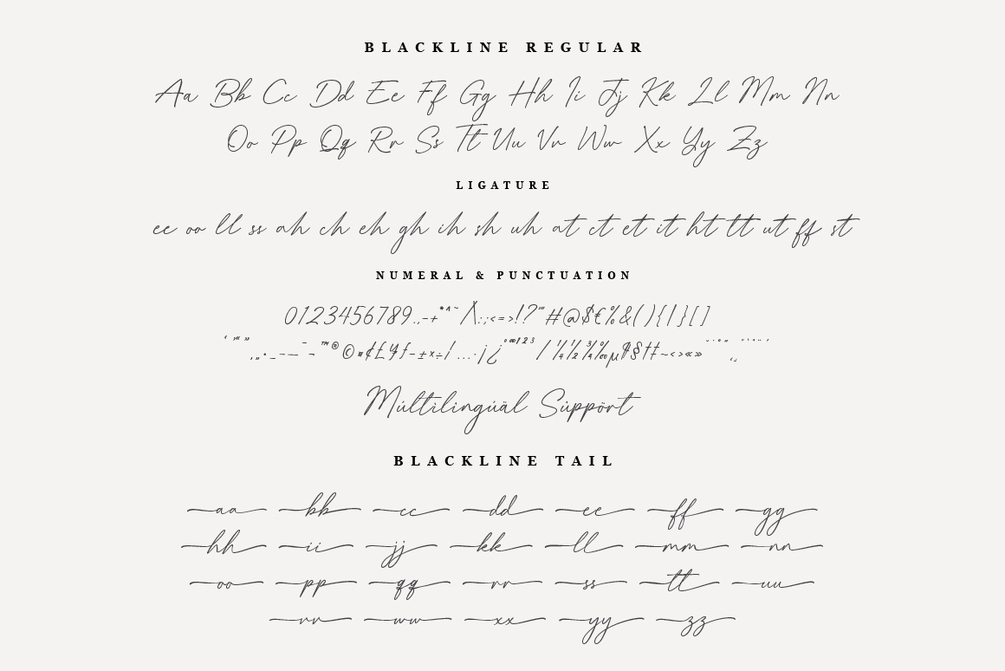 BLACKLINE REGULAR
Aa Bb Cc Dd Ee Ff Gg Hh Ii Jj Kk Ll Mm Nn
Oo Pp Qq Rr Ss Tt Uu Vv Ww Xx Yy Zz
LIGATURE
ee oo ll ss ah ch eh gh ih sh uh at ct et it ht tt ut ff st
NUMERAL & PUNCTUATION
0123456789.,-+*^~/\:;<=>!?'"#@$€%&(){|}[]
™®©¤¢£¥ƒ-±×÷/…·¡¿°ªº123/¼½¾‰µ¶§†‡~‹›«»
Múltilingúäl Süppört
BLACKLINE TAIL
aa bb cc dd ee ff gg
hh ii jj kk ll mm nn
oo pp qq rr ss tt uu
vv ww xx yy zz